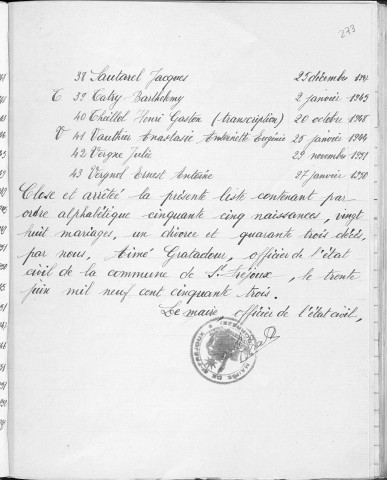 273
38 Sautarel Jacques 25 décembre
T 39 Catry Barthélemy 2 janvier 1945
40 Theillet Henri Gaston (-transcription) 20 octobre 1948
V 41 Vauthier Anastasie Antoinette Eugénie 25 janvier 1944
42 Vergne Julie 29 novembre 1951
43 Vergnol Ernest Antoine 27 janvier 1950
Close et arrêtée la présente liste contenant par
ordre alphabétique cinquante cinq naissances, vingt
huit mariages, un divorce et quarante trois décès,
par nous, Aimé Gratadour, officier de l'état
civil de la commune de St-Fréjoux, le trente
juin mil neuf cent cinquante trois.
Le maire, officier de l'état civil,
MAIRIE DE St-FRÉJOUX